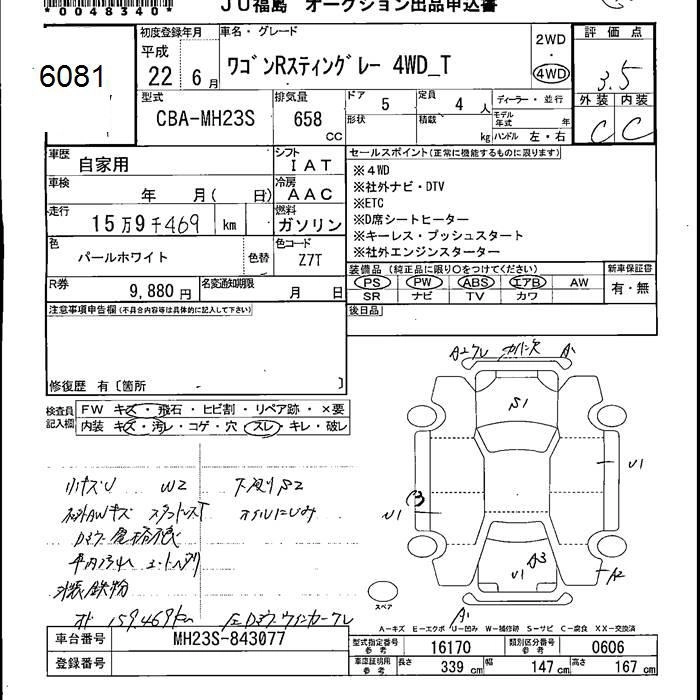 *0048340*
JU福島 オークション出品申込書
6081
初度登録年月
平成
22年 6月
車名・グレード
ワゴンRスティングレー 4WD_T
2WD
4WD
評価点
3.5
外装 内装
C C
型式
CBA-MH23S
排気量
658
CC
ドア 5
定員 4人
形状
積載 kg
ディーラー・並行
モデル年式 年
ハンドル 左・右
車歴
自家用
シフト
IAT
車検
年 月( 日)
冷房
AAC
走行
15万9千469 km
燃料
ガソリン
色
パールホワイト
色替
色コード
Z7T
R券
9,880円
名変通知期限
月 日
セールスポイント(正常に機能するものに限ります)
※4WD
※社外ナビ・DTV
※ETC
※D席シートヒーター
※キーレス・プッシュスタート
※社外エンジンスターター
装備品 (純正品に限り○をつけてください)
PS PW ABS エアB AW
SR ナビ TV カワ
新車保証書
有・無
後日品
注意事項申告欄(不具合内容等は具体的に記入して下さい)
修復歴 有〔箇所 〕
検査員記入欄
FW キズ・飛石・ヒビ割・リペア跡・×要
内装 キズ・汚レ・コゲ・穴・スレ・キレ・破レ
小キズU W2 下廻りS2
社外AWキズ
オイルにじみ
鉄粉
159,469km
ウインカーワレ
A1
S1
U1
U1
A3
U1
A2
A1
スペア
A-キズ E-エクボ U-凹み W-補修跡 S-サビ C-腐食 XX-交換済
車台番号
MH23S-843077
登録番号
型式指定番号 参考
16170
類別区分番号 参考
0606
車庫証明用 参考
長さ 339 cm
幅 147 cm
高さ 167 cm